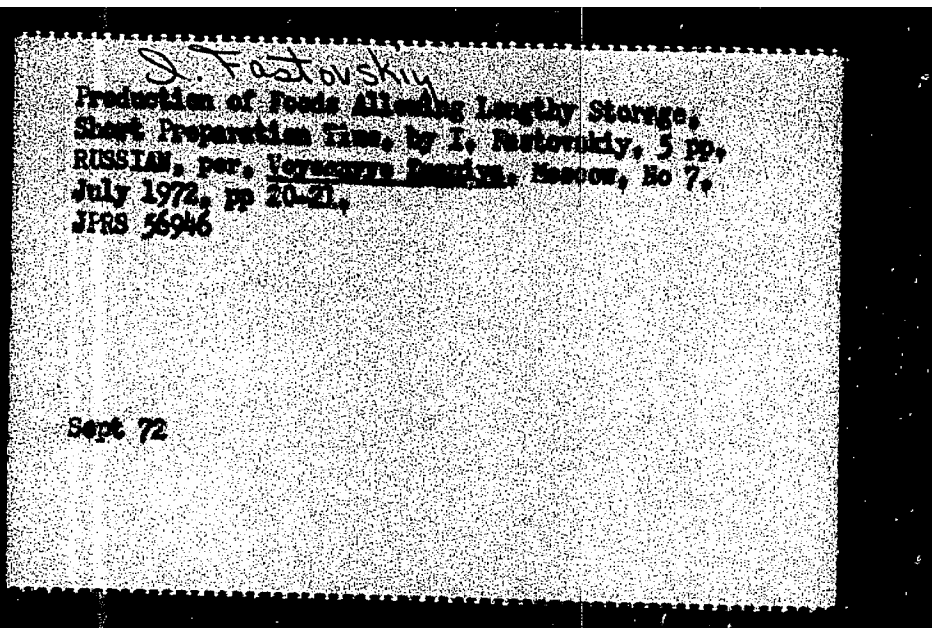 I. Fastovskiy
Production of Foods Allowing Lengthy Storage,
Short Preparation Time, by I. Fastovskiy, 5 pp.
RUSSIAN, per, Moscow, No 7,
July 1972, pp 20-21.
JPRS 56946
Sept 72